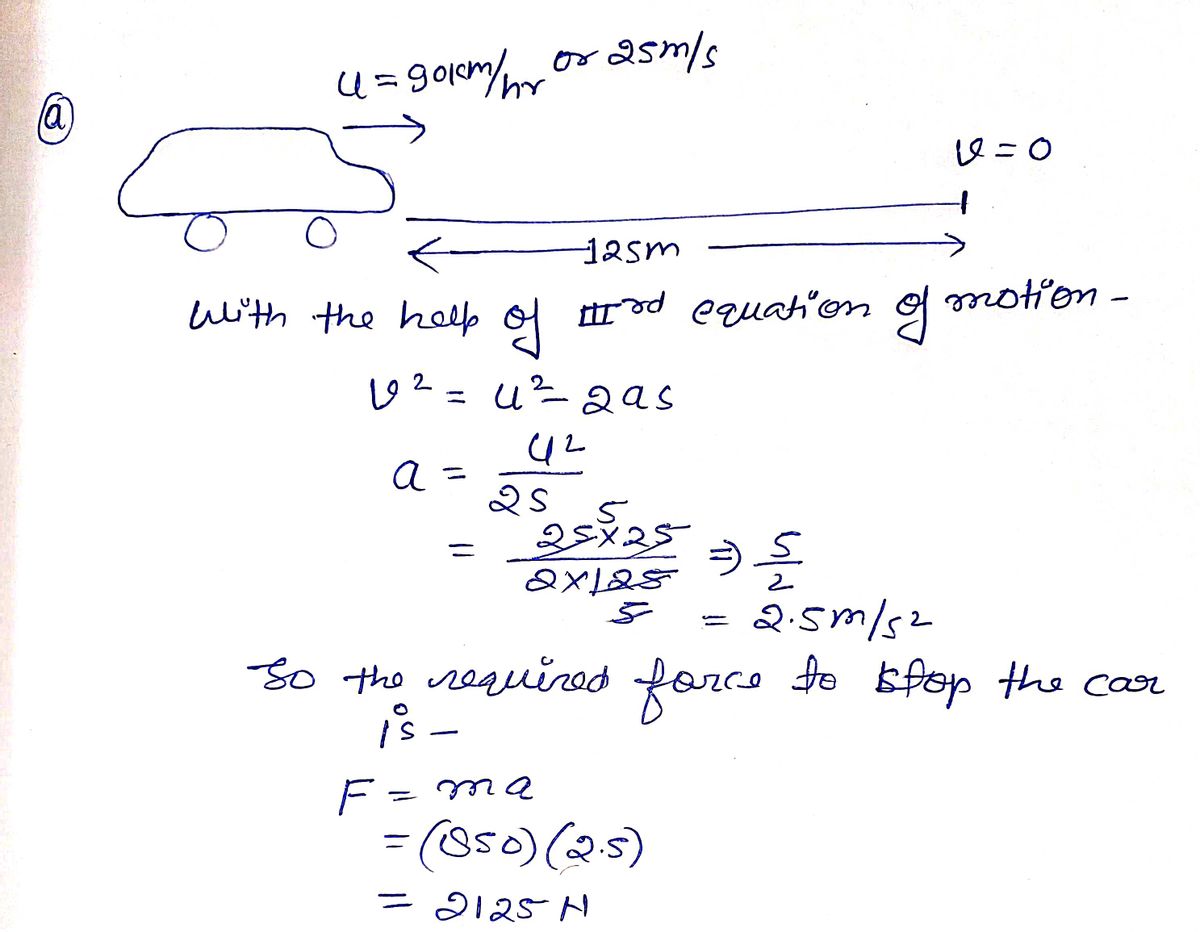 u = 90km/hr or 25m/s
(a)
v = 0
125m
With the help of IIIrd equation of motion -
v² = u² - 2as
a = u²/2s
= 25×25/2×125 5 5 ⇒ 5/2
= 2.5m/s²
So the required force to stop the car
is -
F = ma
= (850)(2.5)
= 2125 N